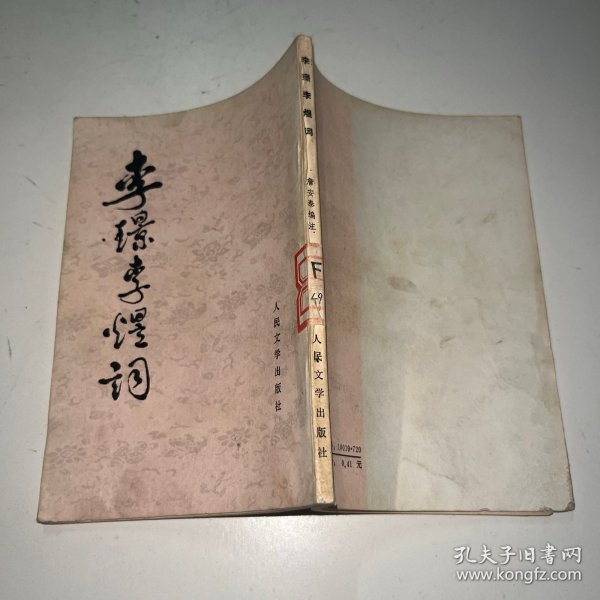 李璟李煜词
人民文学出版社
李璟李煜词
·詹安泰编注·
F
49
人民文学出版社
10019·720
0.41 元
孔夫子旧书网
www.kongfz.com